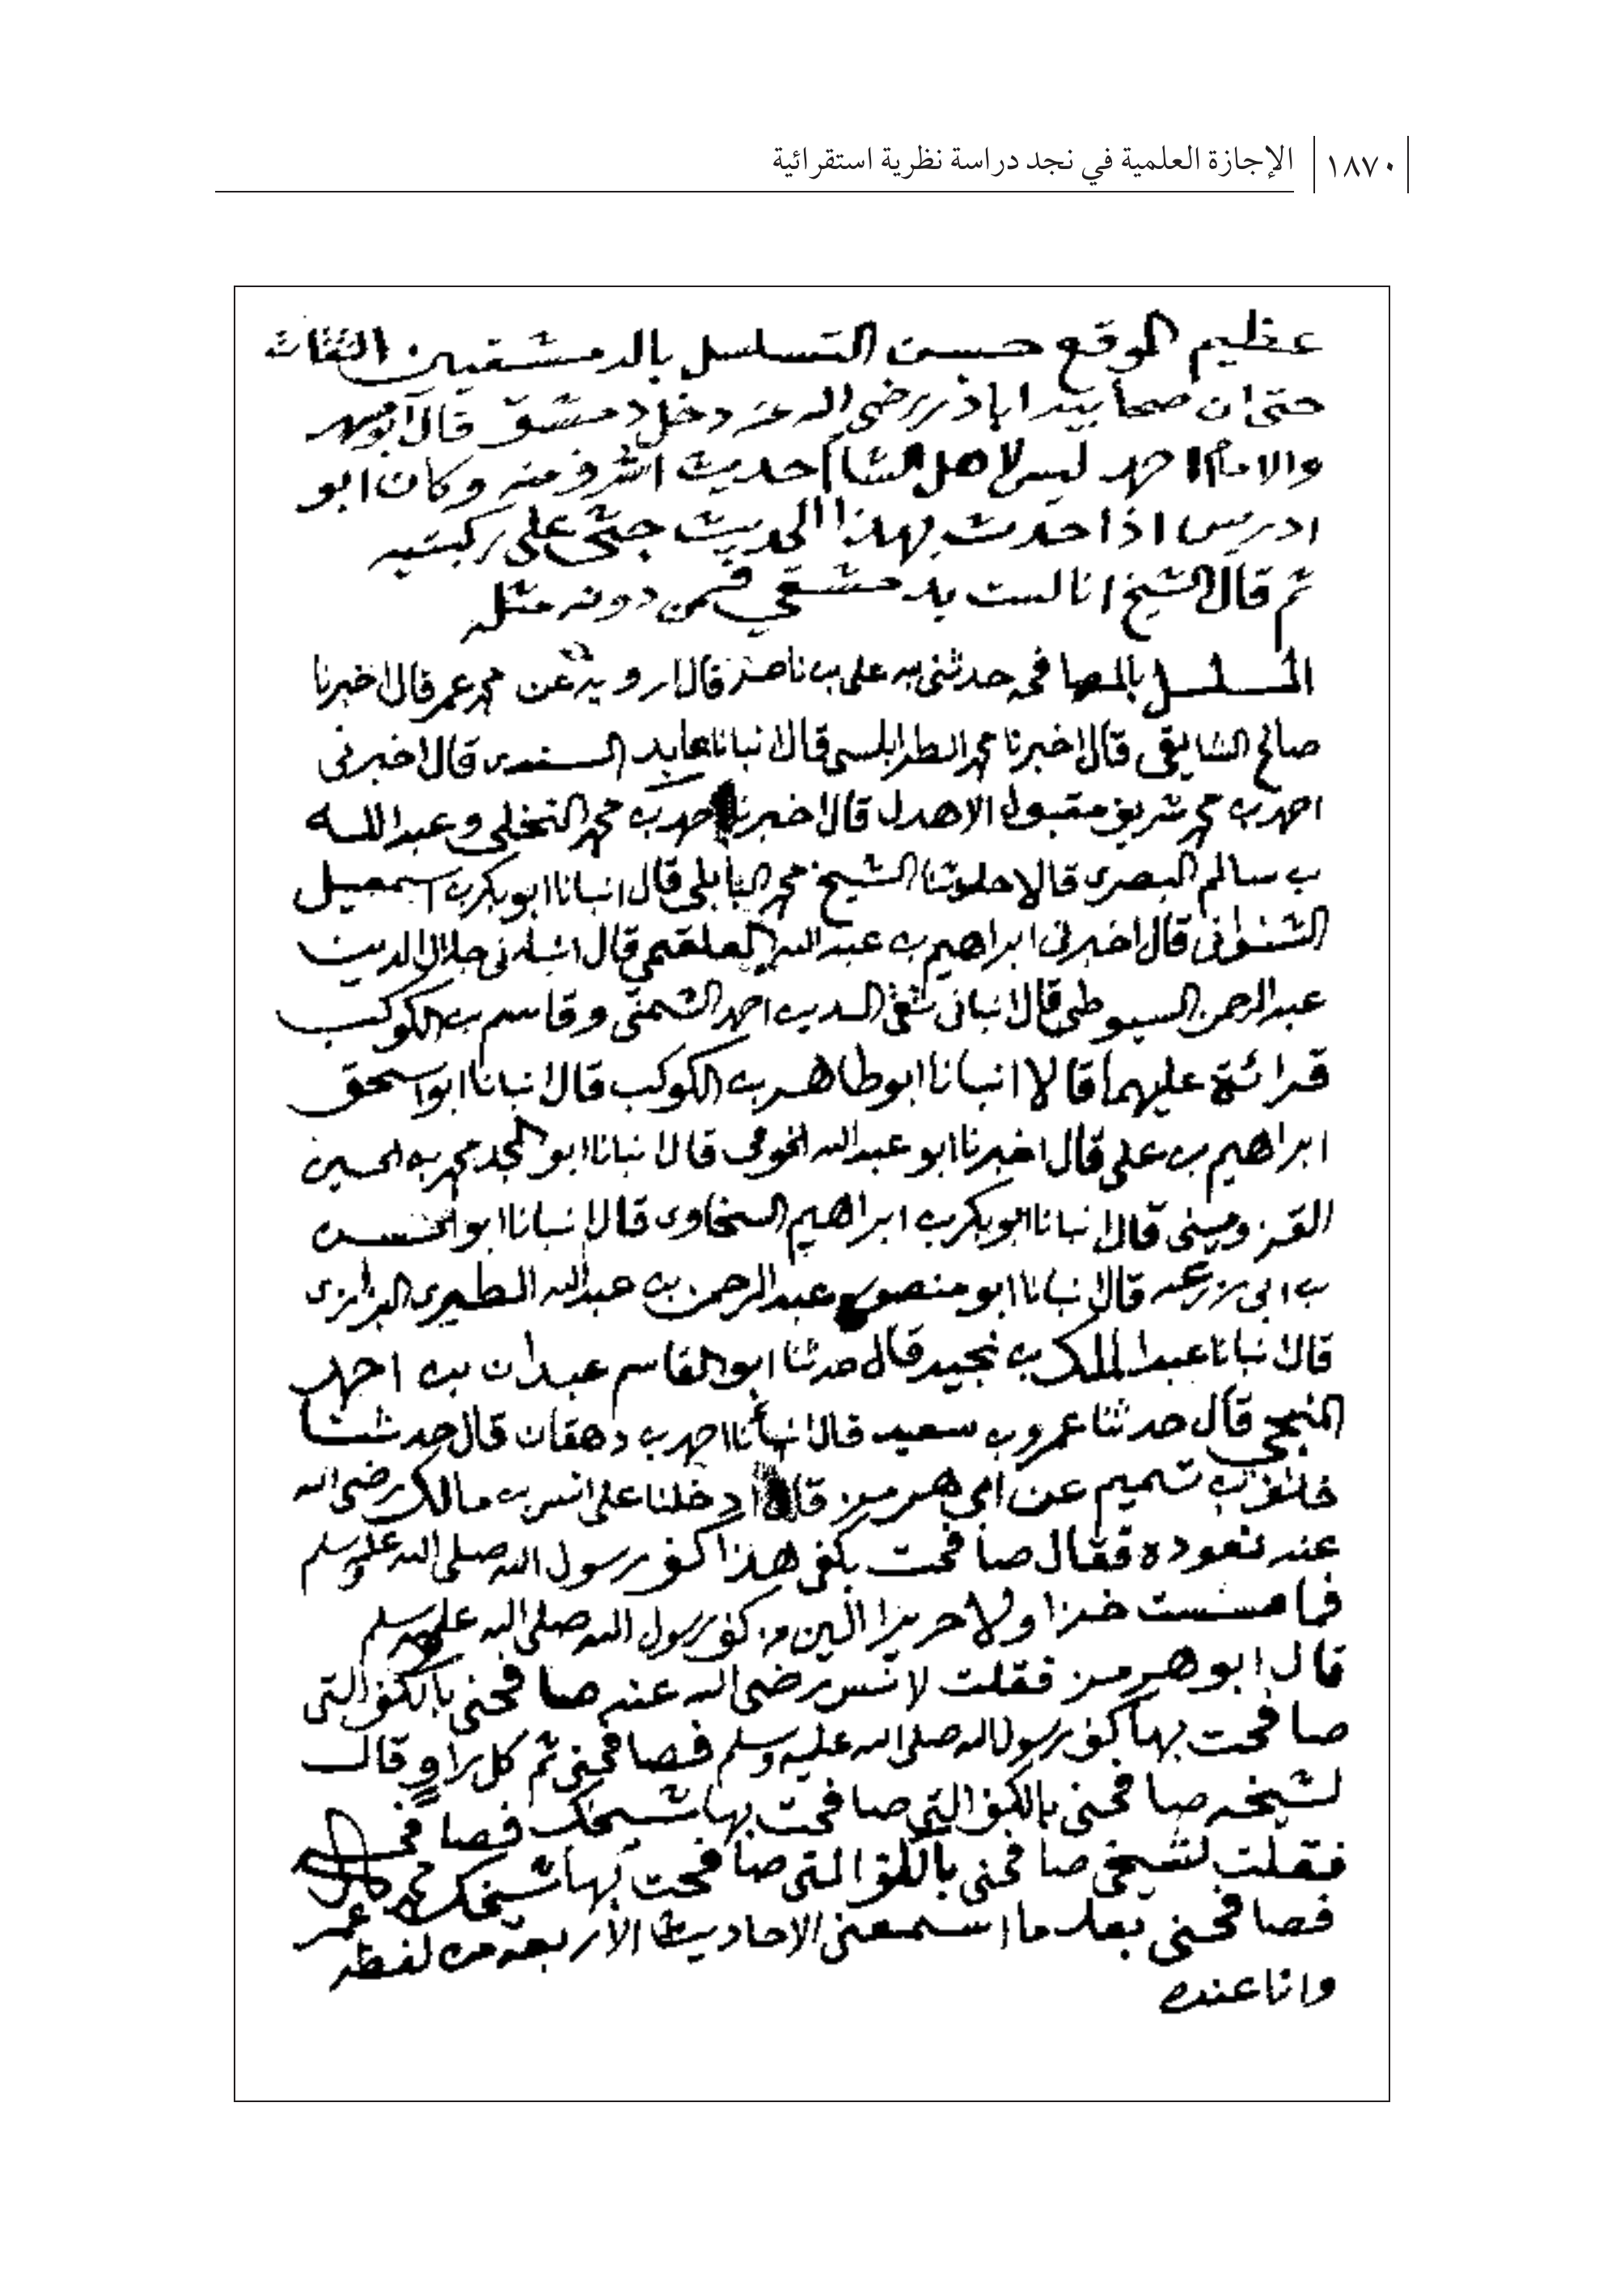 ١٨٧٠ الإجازة العلمية في نجد دراسة نظرية استقرائية
عظيم الموقع حسن التسلسل بالدمشقيين الثقات
حتى ان صحابيه ابا ذر رضي الله عنه دخل دمشق قال ابو مسهر
والامام احمد ليس لاهل الشام حديث اشرف منه وكان ابو
ادريس اذا حدث بهذا الحديث جثى على ركبتيه
ثم قال الشيخ انا لست بدمشقي فمن دونه مثله
المسلسل بالمصافحه حدثني به علي بن ناصر قال ارويه عن محمد عمر قال اخبرنا
صالح قال اخبرنا محمد الطرابلسي قال انبانا عابد السندي قال اخبرني
احمد بن محمد شريف مقبول الاهدل قال اخبرنا احمد بن محمد النخلي وعبد الله
بن سالم البصري قالا حدثنا الشيخ محمد البابلي قال انبانا ابو بكر بن اسمعيل
الشنواني قال اخبرني ابراهيم بن عبد الله العلقمي قال جلال الدين
عبد الرحمن السيوطي قال انباني تقي الدين احمد الشمني وقاسم بن الكوكب
قرائة عليهما قالا انبانا ابو طاهر بن الكوكب قال انبانا ابو اسحق
ابراهيم بن علي قال اخبرنا ابو عبد الله الخوفي قال انبانا ابو المجد محمد بن الحسين
القزويني قال انبانا ابو بكر بن ابراهيم السخاوي قال انبانا ابو الحسن
بن ابي زرعه قال انبانا ابو منصور عبد الرحمن بن عبد الله الطبري البزازي
قال انبانا عبد الملك بن نجيد قال حدثنا ابو القاسم عبدان بن احمد
المنبجي قال حدثنا عمرو بن سعيد قال انبأنا احمد بن دهقان قال حدثنا
خلف بن تميم عن ابي هرمز قال دخلنا على انس بن مالك رضي الله
عنه نعوده فقال صافحت بكفي هذا كف رسول الله صلى الله عليه وسلم
فما مسست خزا ولا حريرا الين من كف رسول الله صلى الله عليه وسلم
قال ابو هرمز فقلت لانس رضي الله عنه صافحني بالكف التي
صافحت بها كف رسول الله صلى الله عليه وسلم فصافحني ثم كل راو قال
لشيخه صافحني بالكف التي صافحت بها شيخك فصافحه
فقلت لشيخي صافحني بالكف التي صافحت بها شيخك محمد عمر
فصافحني بعد ما اسمعني الاحاديث الاربعه من لفظه
وانا عنده